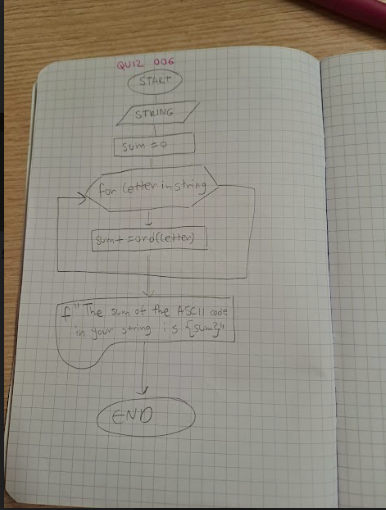 QUIZ 006
START
STRING
sum = 0
for letter in string
sum+ =ord(letter)
f" The sum of the ASCII code
in your string is {sum}"
END